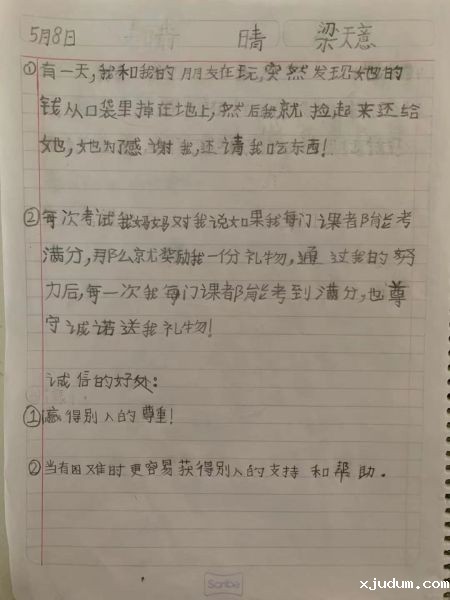 5月8日 晴 梁天意
①有一天,我和我的朋友在玩,突然发现她的
钱从口袋里掉在地上,然后我就捡起来还给
她,她为了感谢我,还请我吃东西!
②每次考试我妈妈对我说如果我每门课都能考
满分,那么就奖励我一份礼物,通过我的努
力后,每一次我每门课都能考到满分,也尊
守诚诺送我礼物!
诚信的好处:
①赢得别人的尊重!
②当有困难时更容易获得别人的支持和帮助.
Scribe
xjudum.com